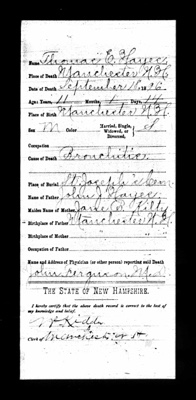 Name Thomas E. Hayes
Place of Death Manchester N.H.
Date of Death September 16
Age: Years, 11 Months, Days, 14
Place of Birth Manchester N.H.
Sex M Color Married, Single, Widowed, or Divorced, S
Occupation
Cause of Death Bronchitis
Place of Burial St. Joseph's Cem.
Name of Father John J. Hayes
Maiden Name of Mother
Birthplace of Father Manchester N.H.
Birthplace of Mother
Occupation of Father
Name and Address of Physician (or other person) reporting said Death
John Ferguson M.D.
THE STATE OF NEW HAMPSHIRE.
I hereby certify that the above death record is correct to the best of
my knowledge and belief.
Kidder
Clerk of Manchester